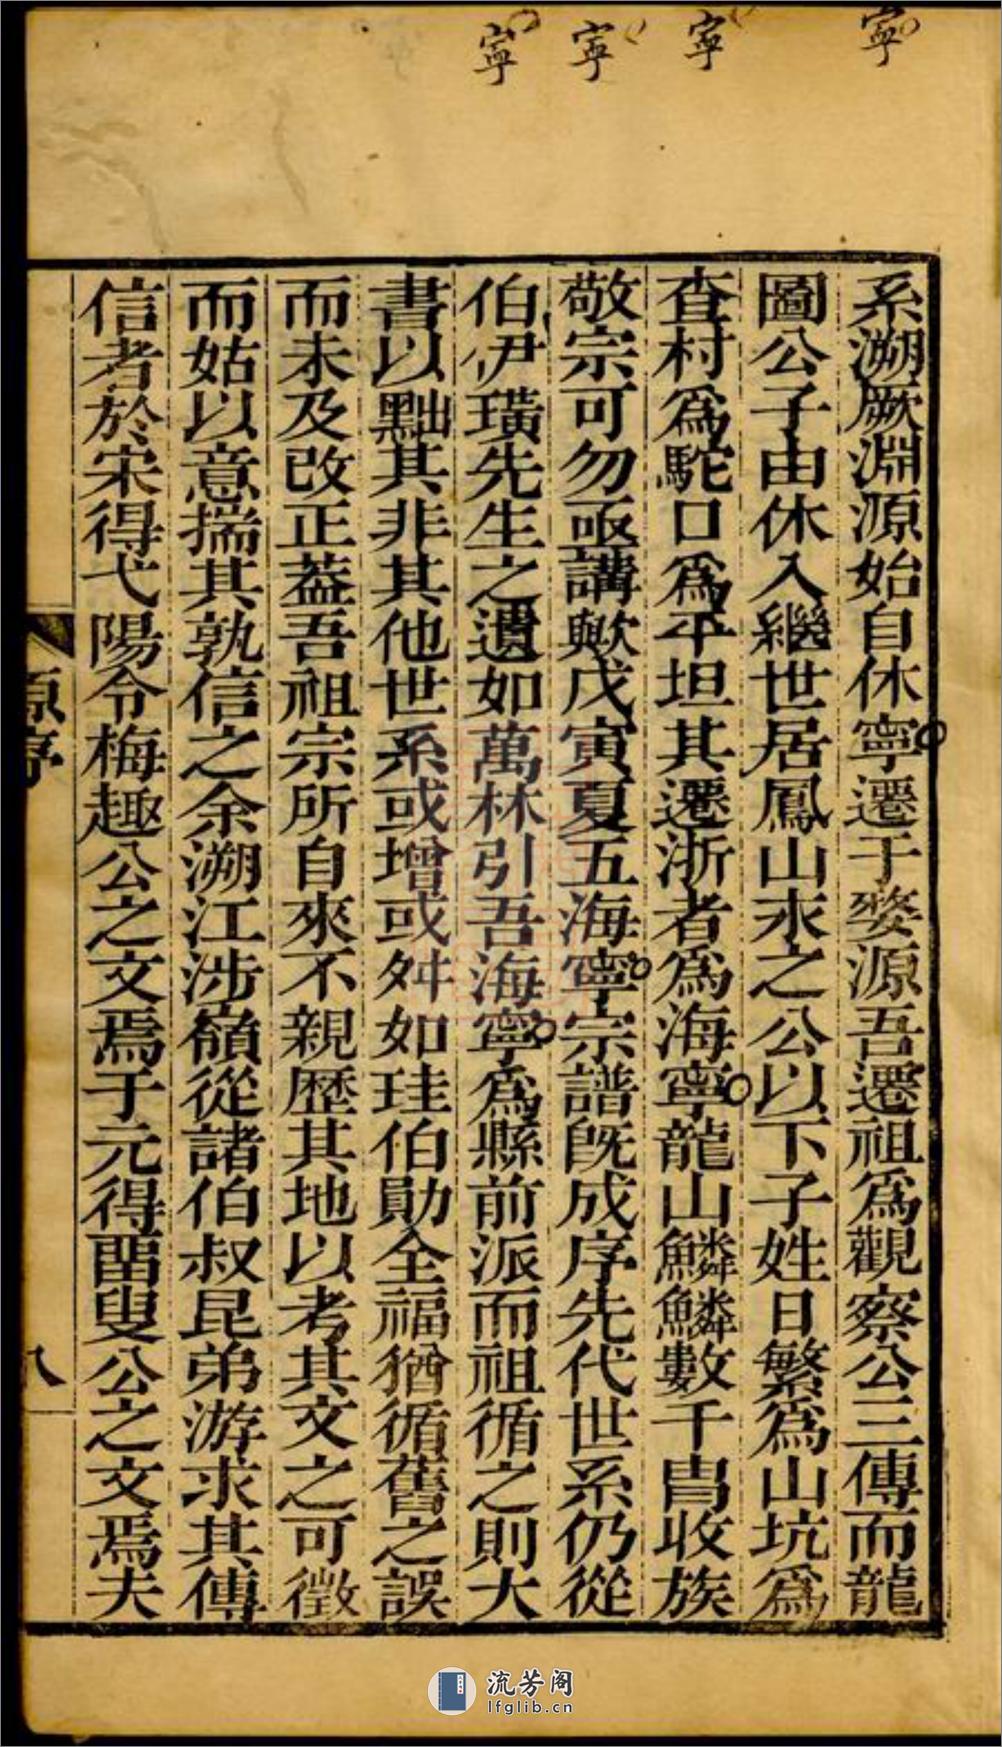 寧 寧 寧 寧
系溯厥淵源始自休寧遷于婺源吾遷祖爲觀察公三傳而龍
圖公子由休入繼世居鳳山永之公以下子姓日繁爲山坑爲
查村爲駝口爲平坦其遷浙者爲海寧龍山鱗鱗數千𠱾收族
敬宗可勿亟講歟戊寅夏五海寧宗譜旣成序先代世系仍從
伯尹璜先生之遺如萬林引吾海寧爲縣前派而祖循之則大
書以黜其非其他世系或增或舛如珪伯勛全福猶循舊之誤
而未及改正葢吾祖宗所自來不親歷其地以考其文之可徵
而姑以意揣其孰信之余溯江涉嶺從諸伯叔昆弟游求其傳
信者於宋得弋陽令梅趣公之文焉于元得畱叟公之文焉夫
原序
八
流芳阁
lfglib.cn